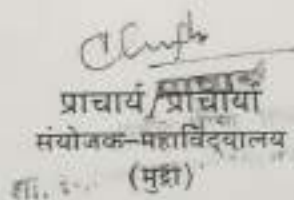 प्राचार्य/प्राचार्या
संयोजक-महाविद्यालय
(मुद्रा)